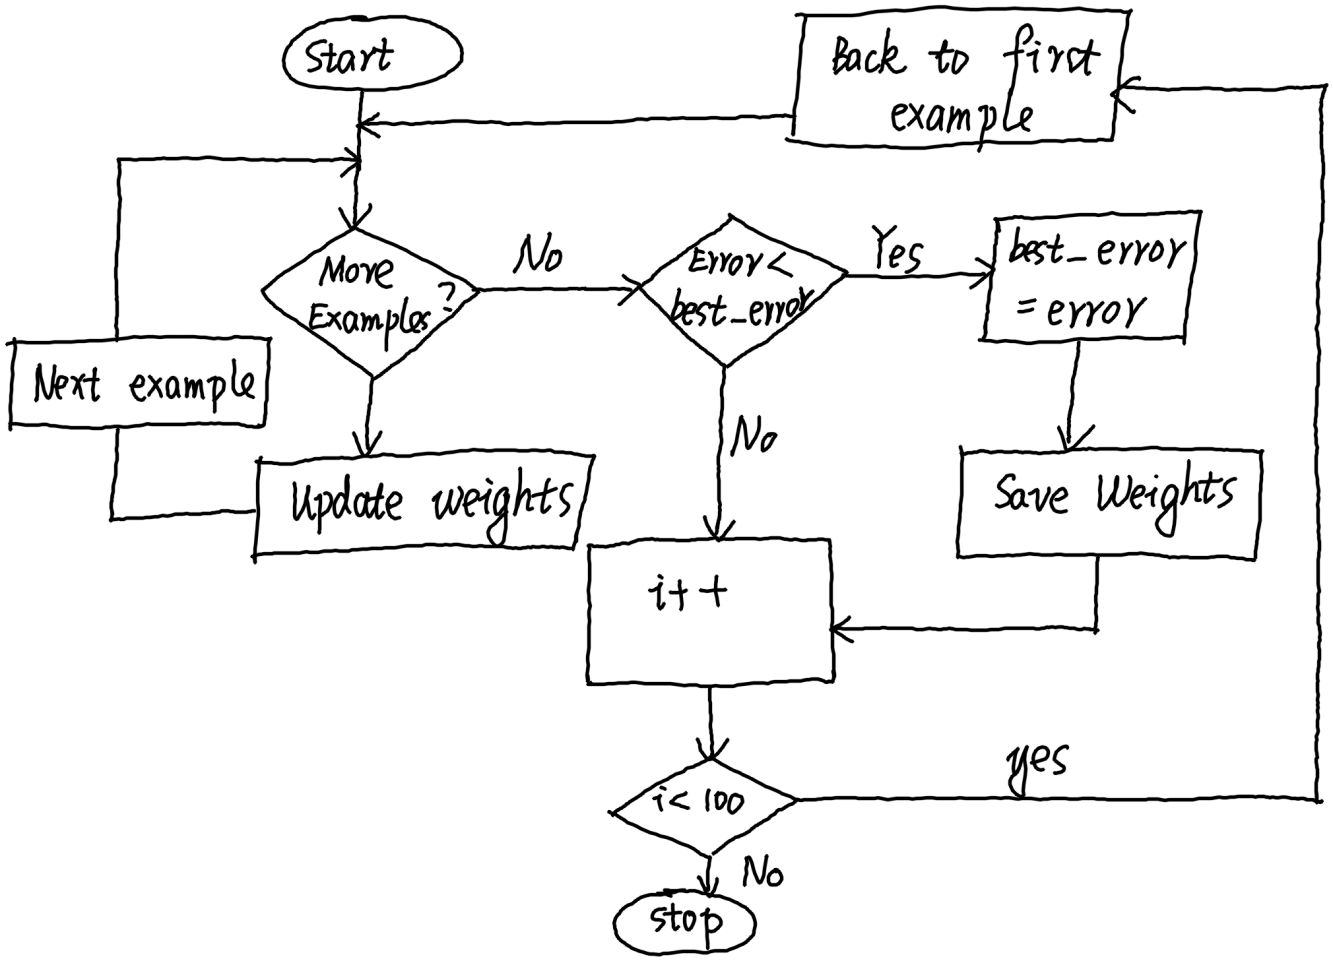 Start
Back to first
example
More
Examples?
No
Error<
best_error
Yes
best_error
= error
Next example
No
Update weights
Save Weights
i++
yes
i<100
No
stop